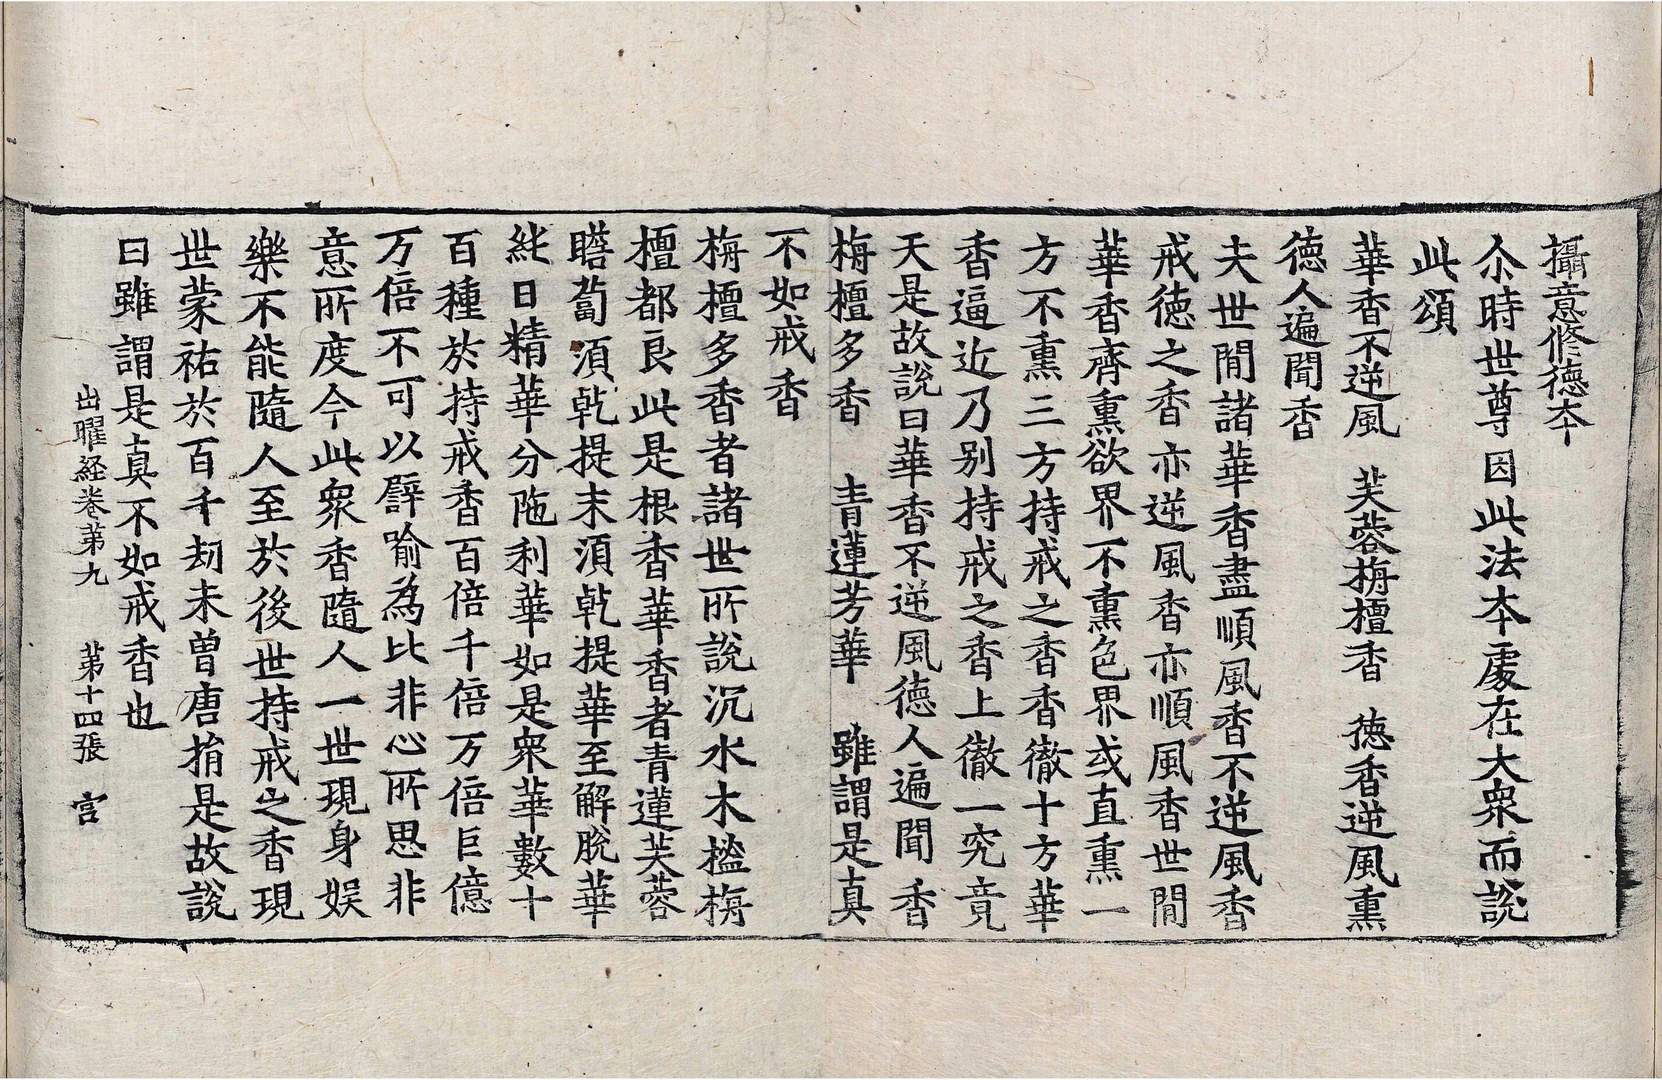 攝意修德本
尒時世尊因此法本處在大衆而說
此頌
華香不逆風　芙蓉栴檀香　德香逆風熏
德人遍聞香
夫世閒諸華香盡順風香不逆風香
戒德之香亦逆風香亦順風香世閒
華香齊熏欲界不熏色界或直熏一
方不熏三方持戒之香香徹十方華
香逼近乃别持戒之香上徹一究竟
天是故說曰華香不逆風德人遍聞香
栴檀多香　青蓮芳華　雖謂是真
不如戒香
栴檀多香者諸世所說沉水木榓栴
檀都良此是根香華香者青蓮芙蓉
瞻蔔須乹提末須乹提華至解脫華
紪日精華分陁利華如是衆華數十
百種於持戒香百倍千倍万倍巨億
万倍不可以譬喻為比非心所思非
意所度今此衆香隨人一世現身娱
樂不能隨人至於後世持戒之香現
世蒙祐於百千刼未曽唐捐是故說
曰雖謂是真不如戒香也
出曜経卷苐九　苐十四張　宫